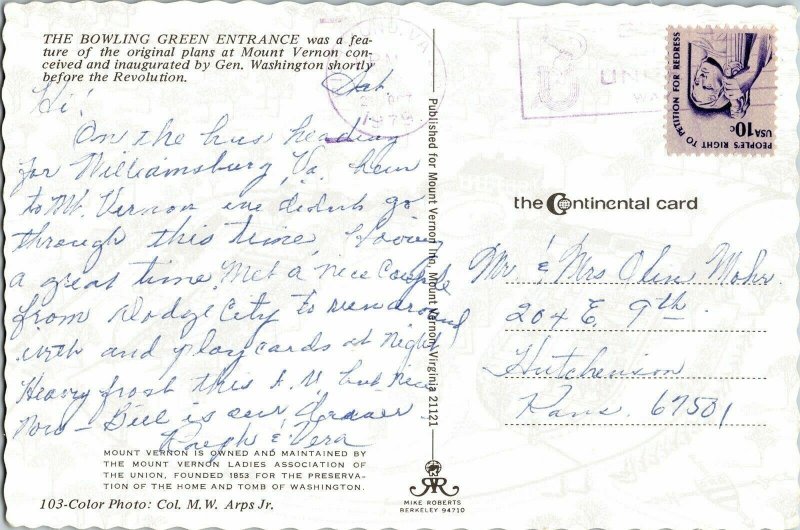 THE BOWLING GREEN ENTRANCE was a fea-
ture of the original plans at Mount Vernon con-
ceived and inaugurated by Gen. Washington shortly
before the Revolution.
Sat
Hi!
On the bus heading
for Williamsburg, Va.
to Mt. Vernon we didnt go
through this time, Having
a great time. Met a nice Couple
from Dodge City to run around
with and play cards at Night
Heavy frost this A.M. but Nice
Now - Bill is our
Ralph & Vera
MOUNT VERNON IS OWNED AND MAINTAINED BY
THE MOUNT VERNON LADIES ASSOCIATION OF
THE UNION, FOUNDED 1853 FOR THE PRESERVA-
TION OF THE HOME AND TOMB OF WASHINGTON.
103-Color Photo: Col. M.W. Arps Jr.
Published for Mount Vernon Inn, Mount Vernon, Virginia 21121
MIKE ROBERTS
BERKELEY 94710
VA
1979
PEOPLE'S RIGHT TO PETITION FOR REDRESS
USA 10c
the Continental card
Mr & Mrs Olin Mohr
204 E. 9th.
Hutchinson
Kans. 67501